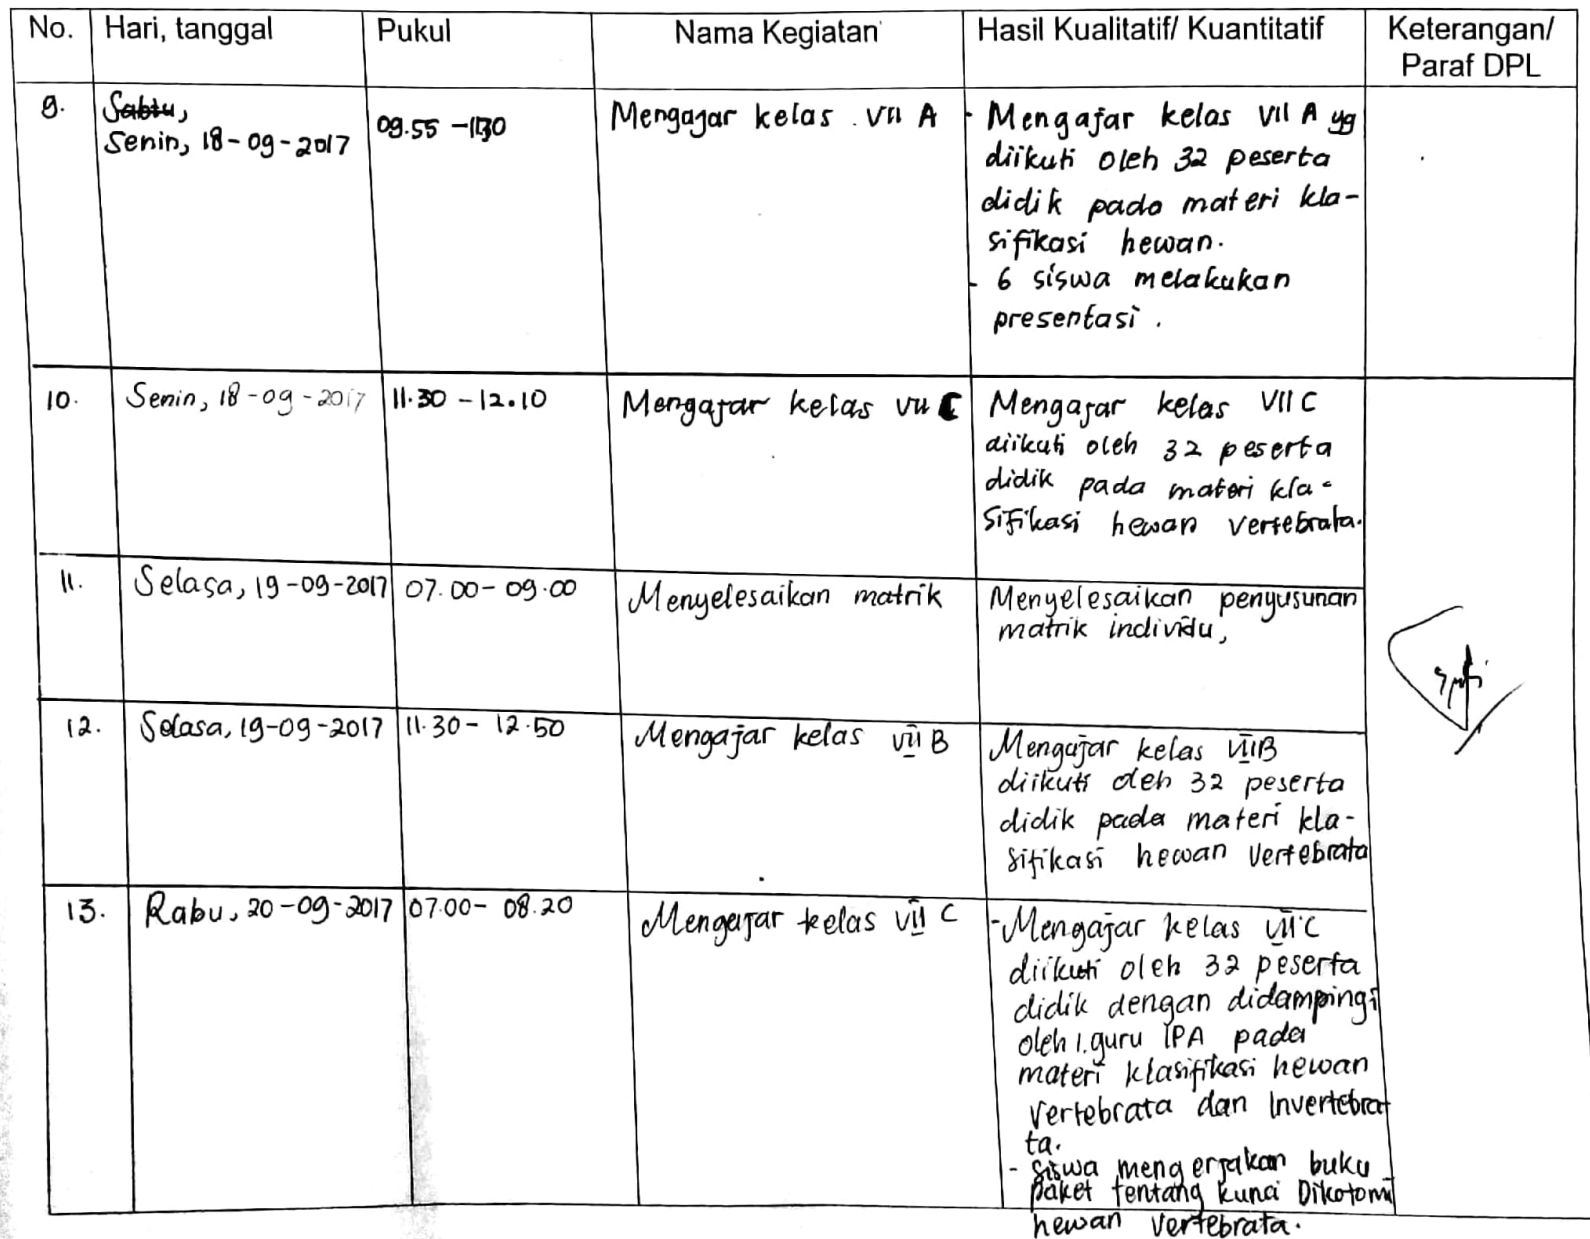 No. Hari, tanggal Pukul Nama Kegiatan Hasil Kualitatif/ Kuantitatif Keterangan/
Paraf DPL
9. Sabtu,
Senin, 18-09-2017 09.55 - 1130 Mengajar kelas VII A - Mengajar kelas VII A yg
diikuti oleh 32 peserta
didik pada materi kla-
sifikasi hewan.
- 6 siswa melakukan
presentasi.
10. Senin, 18-09-2017 11.30 - 12.10 Mengajar kelas VII C Mengajar kelas VII C
diikuti oleh 32 peserta
didik pada materi kla-
sifikasi hewan vertebrata.
11. Selasa, 19-09-2017 07.00 - 09.00 Menyelesaikan matrik Menyelesaikan penyusunan
matrik individu,
12. Selasa, 19-09-2017 11.30 - 12.50 Mengajar kelas VII B Mengajar kelas VII B
diikuti oleh 32 peserta
didik pada materi kla-
sifikasi hewan Vertebrata
13. Rabu, 20-09-2017 07.00 - 08.20 Mengajar kelas VII C - Mengajar kelas VII C
diikuti oleh 32 peserta
didik dengan didampingi
oleh 1.guru IPA pada
materi klasifikasi hewan
Vertebrata dan Invertebra
ta.
- Siswa mengerjakan buku
paket tentang kunci Dikotomi
hewan vertebrata.